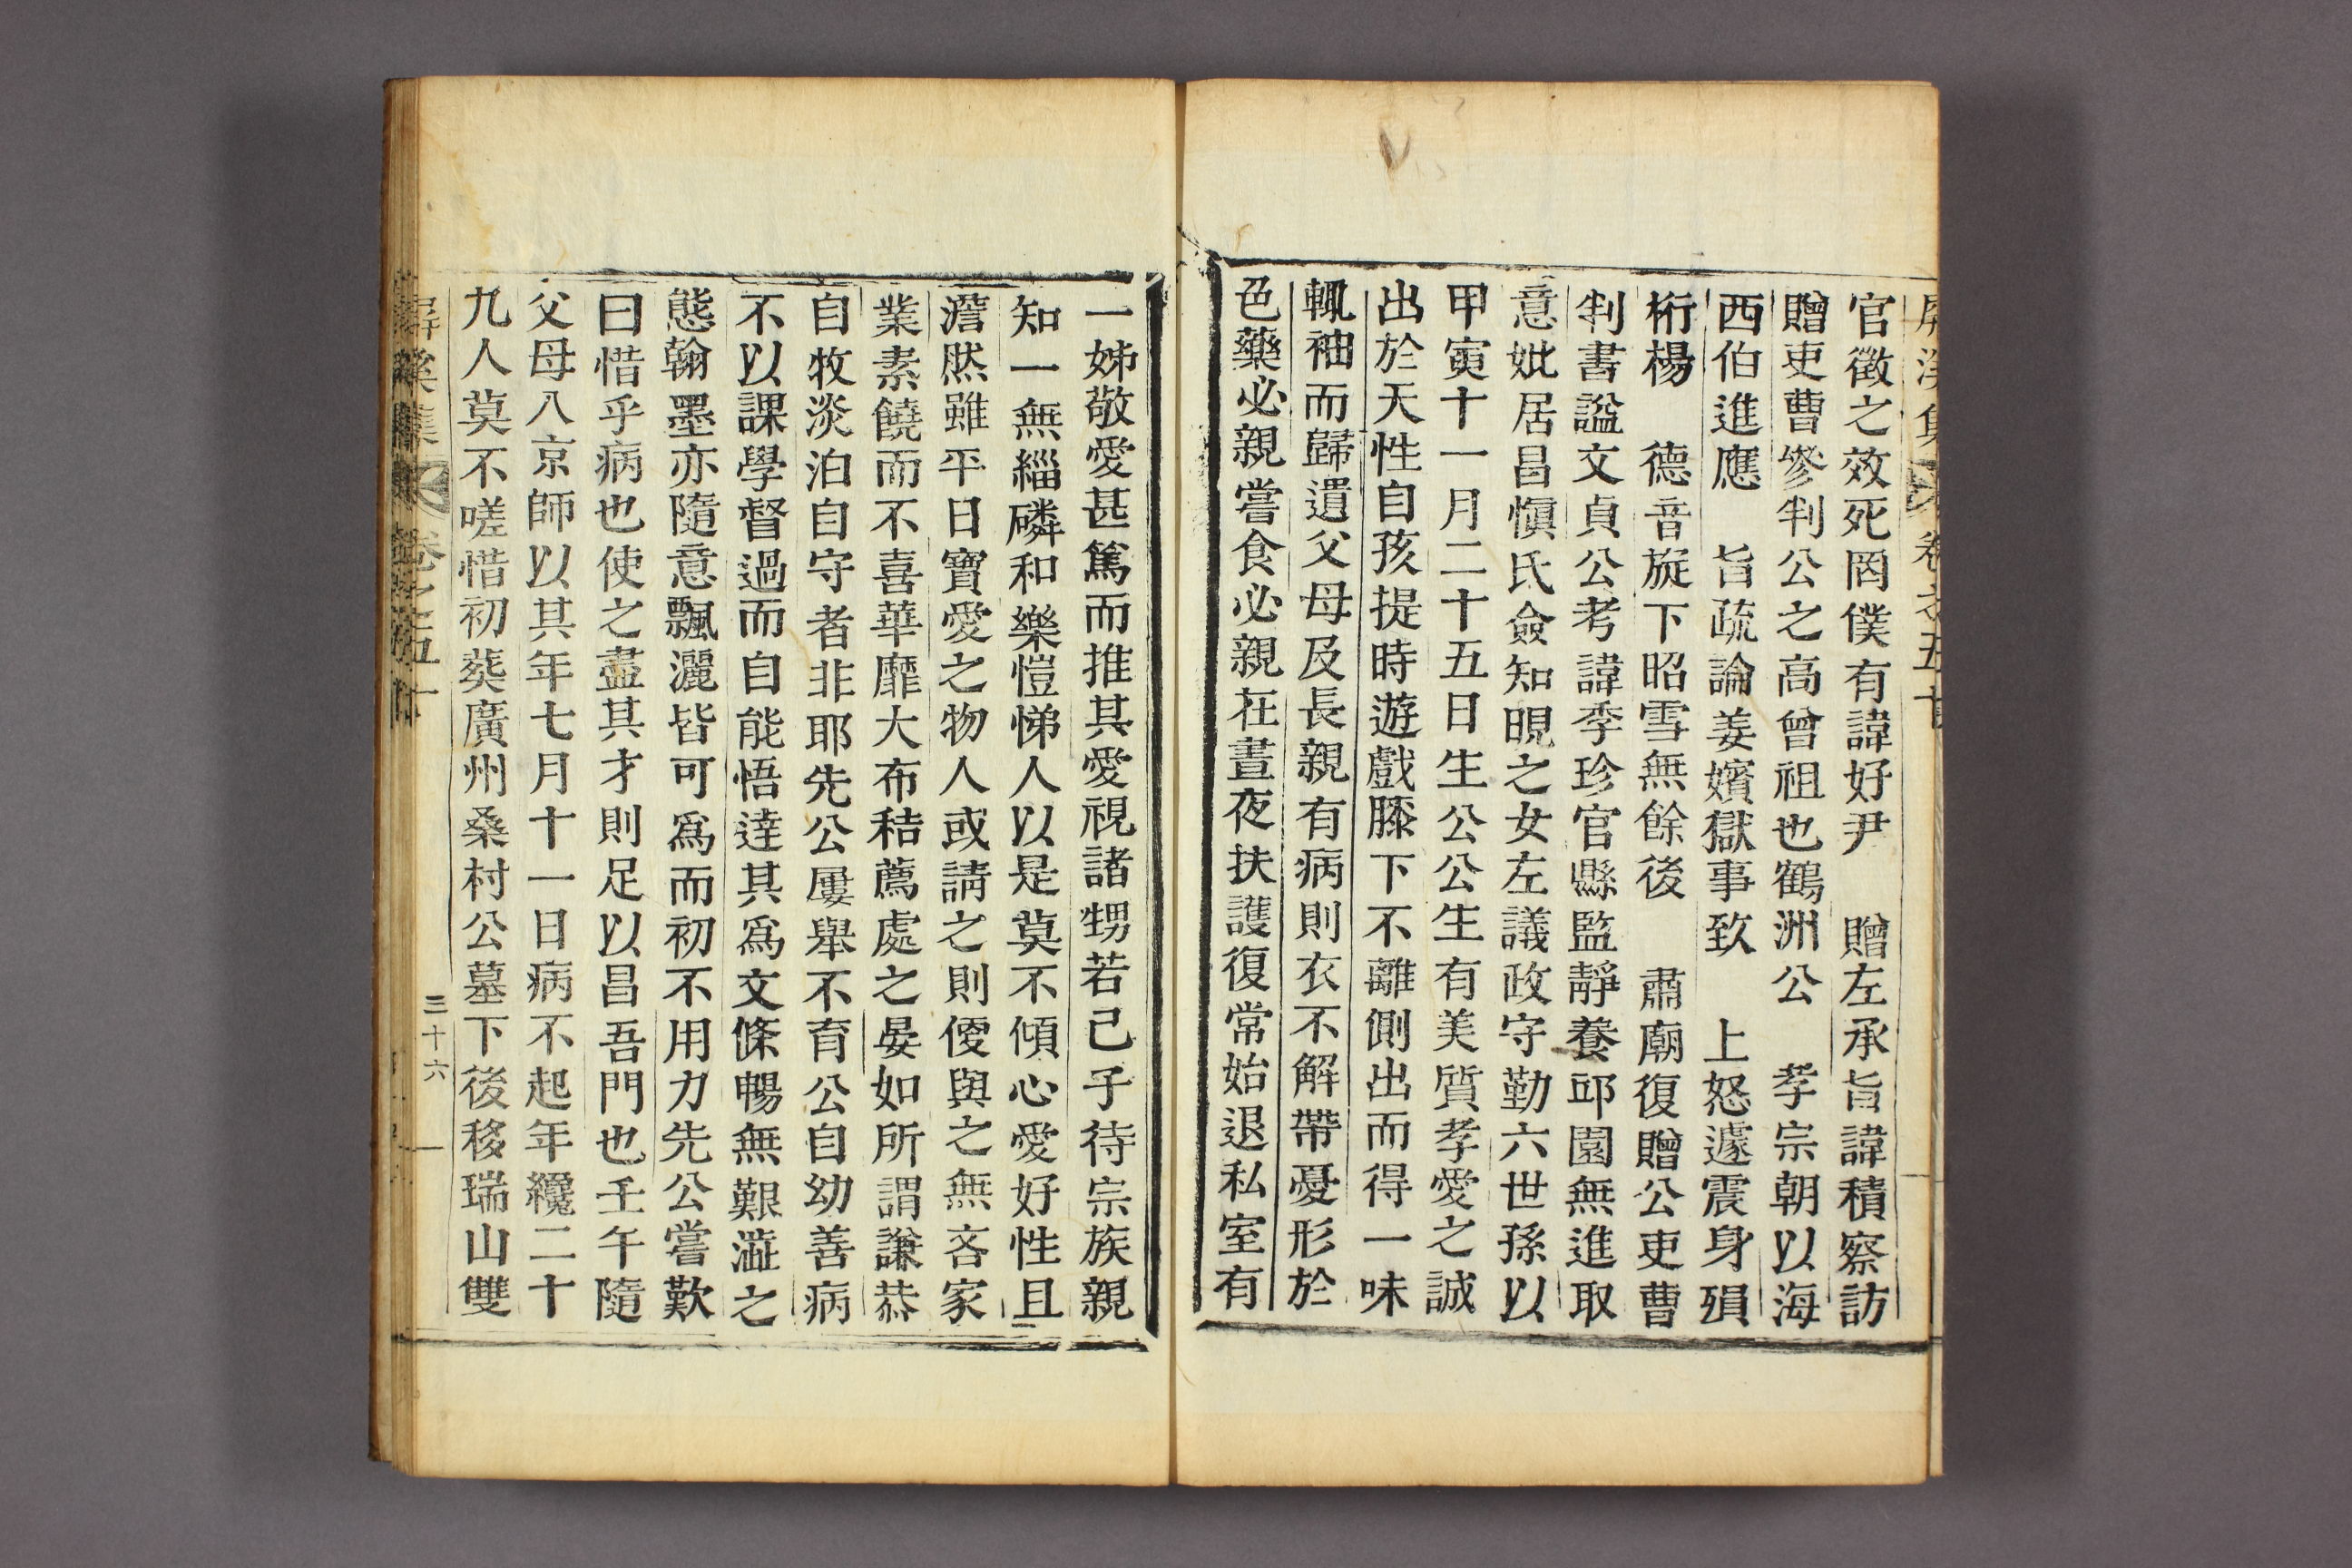 官徵之效死罔僕有諱好尹 贈左承旨諱積察訪
贈吏曹參判公之高曾祖也鶴洲公 孝宗朝以海
西伯進應 旨疏論姜嬪獄事致 上怒遽震身殞
桁楊 德音旋下昭雪無餘後 肅廟復贈公吏曹
判書謚文貞公考諱季珍官縣監靜養邱園無進取
意妣居昌愼氏僉知晛之女左議政守勤六世孫以
甲寅十一月二十五日生公公生有美質孝愛之誠
出於天性自孩提時遊戲膝下不離側出而得一味
輒袖而歸遺父母及長親有病則衣不解帶憂形於
色藥必親嘗食必親在晝夜扶護復常始退私室有
一姊敬愛甚篤而推其愛視諸甥若己子待宗族親
知一無緇磷和樂愷悌人以是莫不傾心愛好性且
澹然雖平日寶愛之物人或請之則優與之無吝家
業素饒而不喜華靡大布秸薦處之晏如所謂謙恭
自牧淡泊自守者非耶先公屢舉不育公自幼善病
不以課學督過而自能悟達其爲文條暢無艱澁之
態翰墨亦隨意飄灑皆可爲而初不用力先公嘗歎
曰惜乎病也使之盡其才則足以昌吾門也壬午隨
父母入京師以其年七月十一日病不起年纔二十
九人莫不嗟惜初葬廣州桑村公墓下後移瑞山雙
三十六